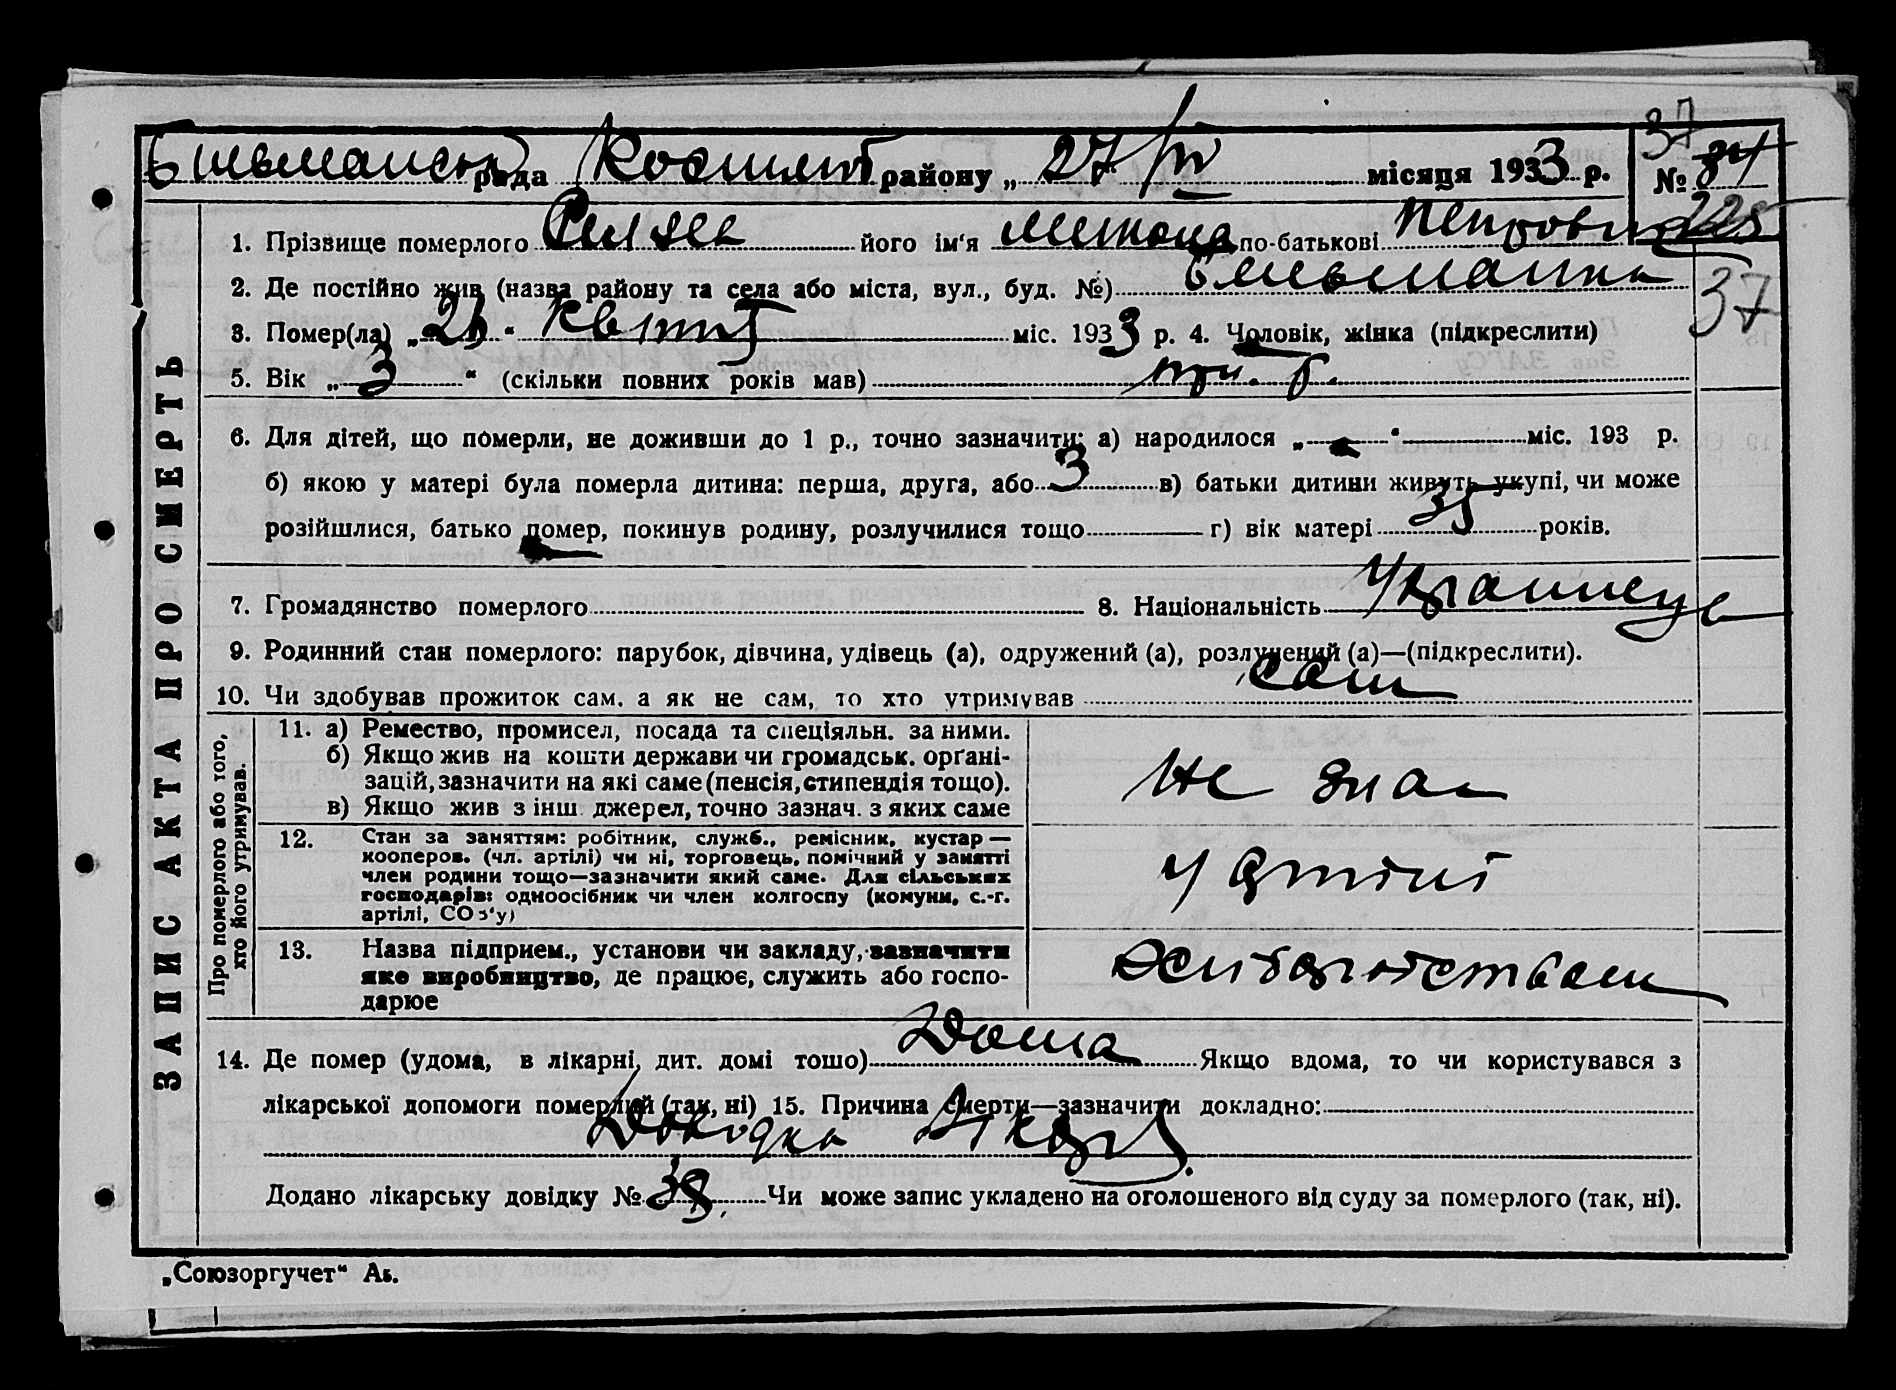 рада району „27/IV місяця 1933 р. № 84
37
225
37
1. Прізвище померлого його ім‘я по-батькові Петрович
2. Де постійно жив (назва району та села або міста, вул., буд. №)
3. Помер(ла) „ “ міс. 1933 р. 4. Чоловік, жінка (підкреслити)
5. Вік „3“ (скільки повних років мав) три. г.
6. Для дітей, що померли, не доживши до 1 р., точно зазначити: а) народилося „—“ міс. 193 р.
б) якою у матері була померла дитина: перша, друга, або 3 в) батьки дитини живуть укупі, чи може
розійшлися, батько помер, покинув родину, розлучилися тощо г) вік матері 35 років.
7. Громадянство померлого 8. Національність Українець
9. Родинний стан померлого: парубок, дівчина, удівець (а), одружений (а), розлучений (а)—(підкреслити).
10. Чи здобував прожиток сам, а як не сам, то хто утримував сам
ЗАПИС АКТА ПРО СМЕРТЬ
Про померлого або того, хто його утримував.
11. а) Ремество, промисел, посада та спеціяльн. за ними.
б) Якщо жив на кошти держави чи громадськ. орґані-
зацій, зазначити на які саме (пенсія, стипендія тощо).
в) Якщо жив з інш. джерел, точно зазнач. з яких саме
не має
12. Стан за заняттям: робітник, служб., ремісник, кустар —
кооперов. (чл. артілі) чи ні, торговець, помічний у занятті
член родини тощо—зазначити який саме. Для сільських
господарів: одноосібник чи член колгоспу (комуни, с.-г.
артілі, СОЗ'у)
у артілі
13. Назва підприєм., установи чи закладу, зазначити
яке виробництво, де працює, служить або госпо-
дарює
Хліборобством
14. Де помер (удома, в лікарні, дит. домі тощо) Дома Якщо вдома, то чи користувався з
лікарської допомоги померлий (так, ні) 15. Причина смерти—зазначити докладно:
Додано лікарську довідку № 38 Чи може запис укладено на оголошеного від суду за померлого (так, ні).
„Союзоргучет“ Аь.